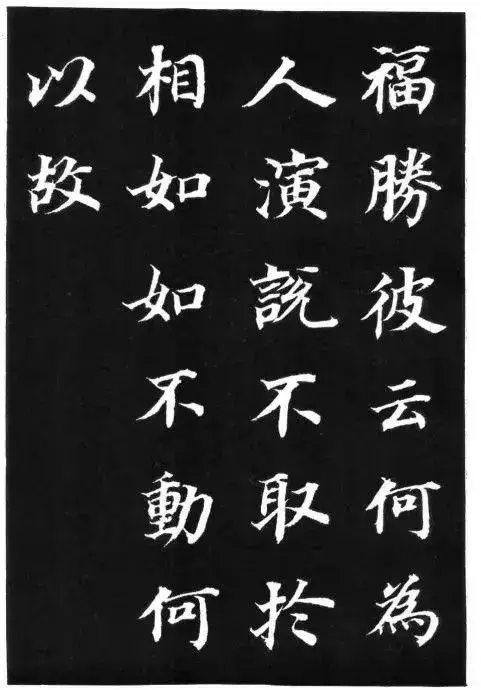 福勝彼云何為
人演説不取於
相如如不動何
以故